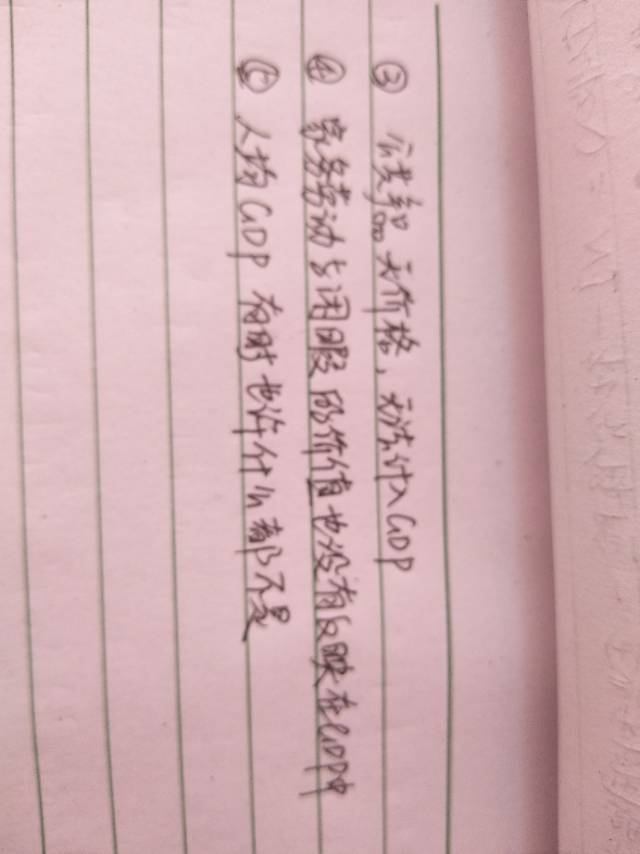 ③ 公共品无价格，无法计入GDP
④ 家务劳动与闲暇的价值也没有反映在GDP中
⑤ 人均GDP有时也许什么都不是